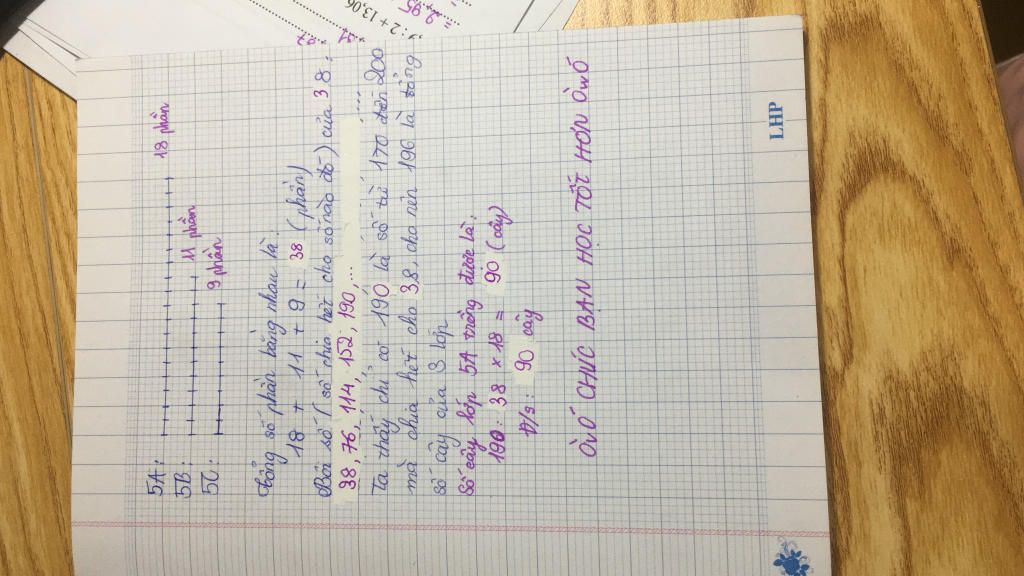 5A: 18 phần
5B: 11 phần
5C: 9 phần
Tổng số phần bằng nhau là:
18 + 11 + 9 = 38 (phần)
Bội số (số chia hết cho số nào đó) của 38:
38, 76, 114, 152, 190,...
Ta thấy chỉ có 190 là số từ 170 đến 200
mà chia hết cho 38, cho nên 196 là tổng
số cây của 3 lớp
Số cây lớp 5A trồng được là:
190 : 38 × 18 = 90 (cây)
Đ/s: 90 cây
ÒwÓ CHÚC BẠN HỌC TỐT HƠN ÒwÓ
LHP
: 2 + 13,06
= 2,95